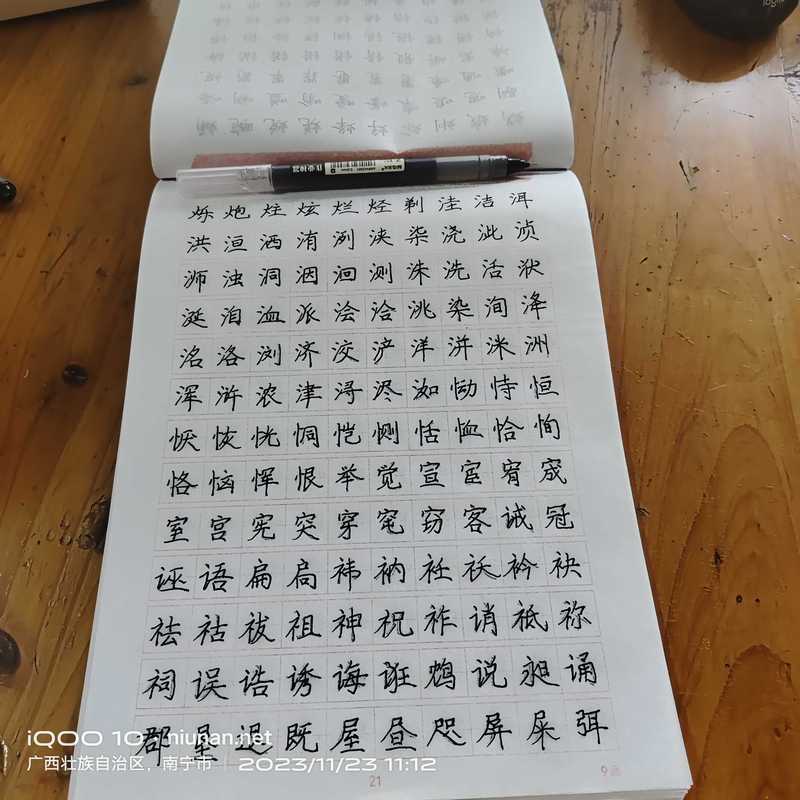 烁 炮 炷 炫 烂 烃 剃 洼 洁 洱
洪 洹 洒 洧 洌 浃 柒 浇 泚 浈
浉 浊 洞 洇 洄 测 洙 洗 活 洑
涎 洎 洫 派 浍 洽 洮 染 洵 洚
洺 洛 浏 济 洨 浐 洋 洴 洣 洲
浑 浒 浓 津 浔 浕 洳 恸 恃 恒
恹 恢 恍 恫 恺 恻 恬 恤 恰 恂
恪 恼 恽 恨 举 觉 宣 宦 宥 宬
室 宫 宪 突 穿 窀 窃 客 诫 冠
诬 语 扁 扃 袆 衲 衽 袄 衿 袂
祛 祜 祓 祖 神 祝 祚 诮 祗 祢
祠 误 诰 诱 诲 诳 鸩 说 昶 诵
郡 垦 退 既 屋 昼 咫 屏 屎 弭
21
9画
iQOO 10 niunan.net
广西壮族自治区，南宁市 2023/11/23 11:12